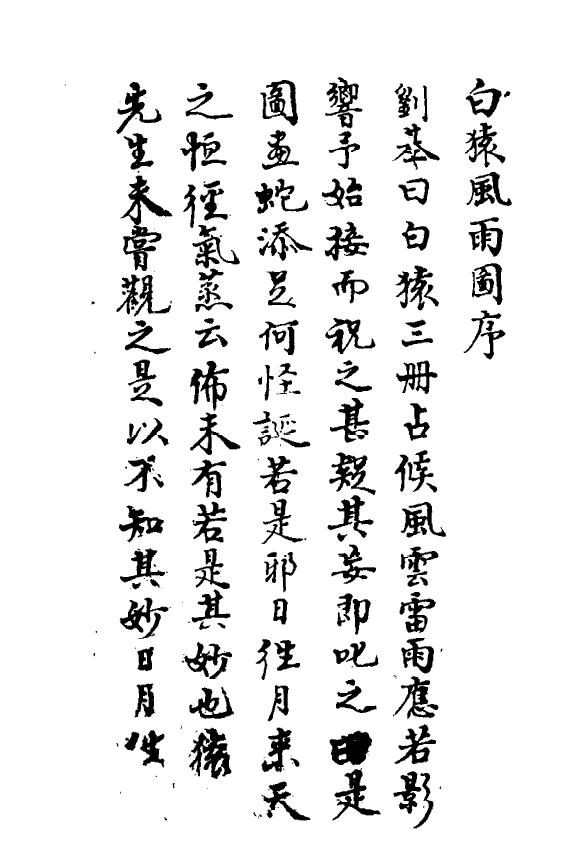 白猿風雨圖序
劉基曰白猿三册占候風雲雷雨應若影
響予始接而視之甚疑其妄即叱之曰是
圖畫蛇添足何怪誕若是邪日徃月來天
之恒徑氣蒸云佈未有若是其妙也猿
先生未嘗觀之是以不知其妙日月徃